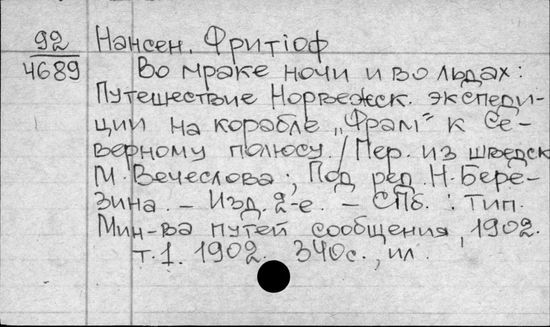 92 Нансен, Фритіоф
4689 Во мраке ночи и во льдах:
Путешествие Норвежск. экспеди-
ции на корабле „Фрам“ к Се-
верному полюсу. / Пер. из шведск
М. Вечеслова; Под ред. Н. Бере-
зина. – Изд. 2-е. – СПб.: Тип.
Мин-ва путей сообщения, 1902.
т. 1. 1902. 340с., ил.